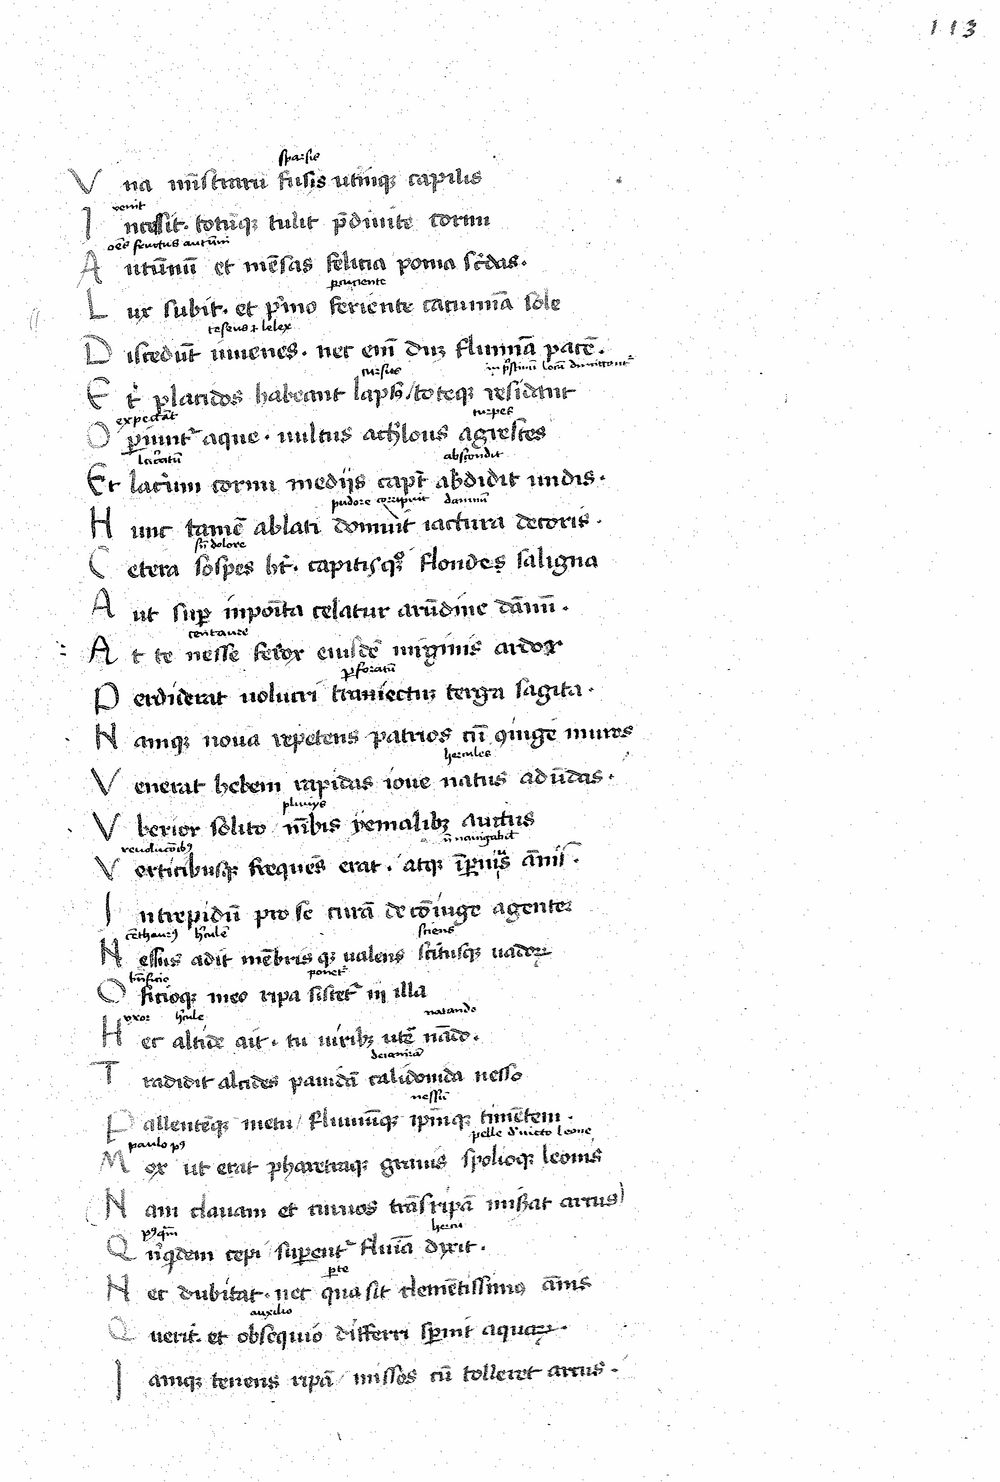 113
sparsis
Una mīstrarū fusis utrinqꝫ capilis
venit
Incessit. totūqꝫ tulit p̄diuite cornu
oēs fructus autūni
Autūnū et mēsas felicia poma scḋas.
pcutiente
Lux subit. et pͥmo feriente cacumīa sole
teseus ⁊ lelex
Discedūt iuuenes. nec eni᷒ duꝫ flumīa pacē.
cursus in pͥstinū locū dimittantᷣ
Et placidos habeant lapsꝰ / toteqꝫ residant
expectāt turpes
Oꝑiuntᷣ aque. uultus achelous agrestes
lacͤatū abscondit
Et lacerum cornu medijs caput abdidit undis.
pudore corripuit damnū
Hunc tamē ablati domuit iactura decoris.
sn̄ dolore
Cetera sospes ht᷒. capitisqꝫ flondes saligna
Aut suꝑ inpoīta celatur arūdine dānū.
centaure
At te nesse ferox eiusdē uirginis ardor
ꝑforatū
Perdiderat uolucri traniectuꝫ terga sagita.
Namqꝫ noua repetens patrios cū ꝯiuge muros
hercules
Venerat hebem rapidas ioue natus ad ūdas.
pluuijs
Vberior solito nībis yemalibꝫ auctus
reuolucōibꝰ nō nauigabilis
Vorticibusqꝫ frequēs erat. atqꝫ īꝑuius ānis.
Intrepidū pro se curā de cōiuge agenteꝫ
cēthaurꝰ hͨculē sciens
Nessus adit mēbrisqꝫ ualens scitusqꝫ uadoꝝ
bn̄ficio ponetᷣ
Oficioqꝫ meo ripa sistetᷣ in illa
uxor hͨcule natando
Hec alcide ait. tu uiribꝫ utē nādo.
deianirā
Tradidit alcides pauidā calidonida nesso
nessū
Pallentēqꝫ metu / fluuiūqꝫ ipm̄qꝫ timētem.
paulo pꝰ pelle dͤuicto leone
Mox ut erat pharetraqꝫ grauis spolioqꝫ leonis
Nam clauam et curuos trās ripā miserat arcus
pꝰqm̄ hercu
Qn̄qͥdem cepi suꝑentᷣ fluīa dixit.
ꝑte
Nec dubitat. nec qua sit clemētissimꝰ ānis
auxilio
Querit. et obsequio differri sꝑnit aquaꝝ.
Iamqꝫ tenens ripā / missos cū tolleret arcus.